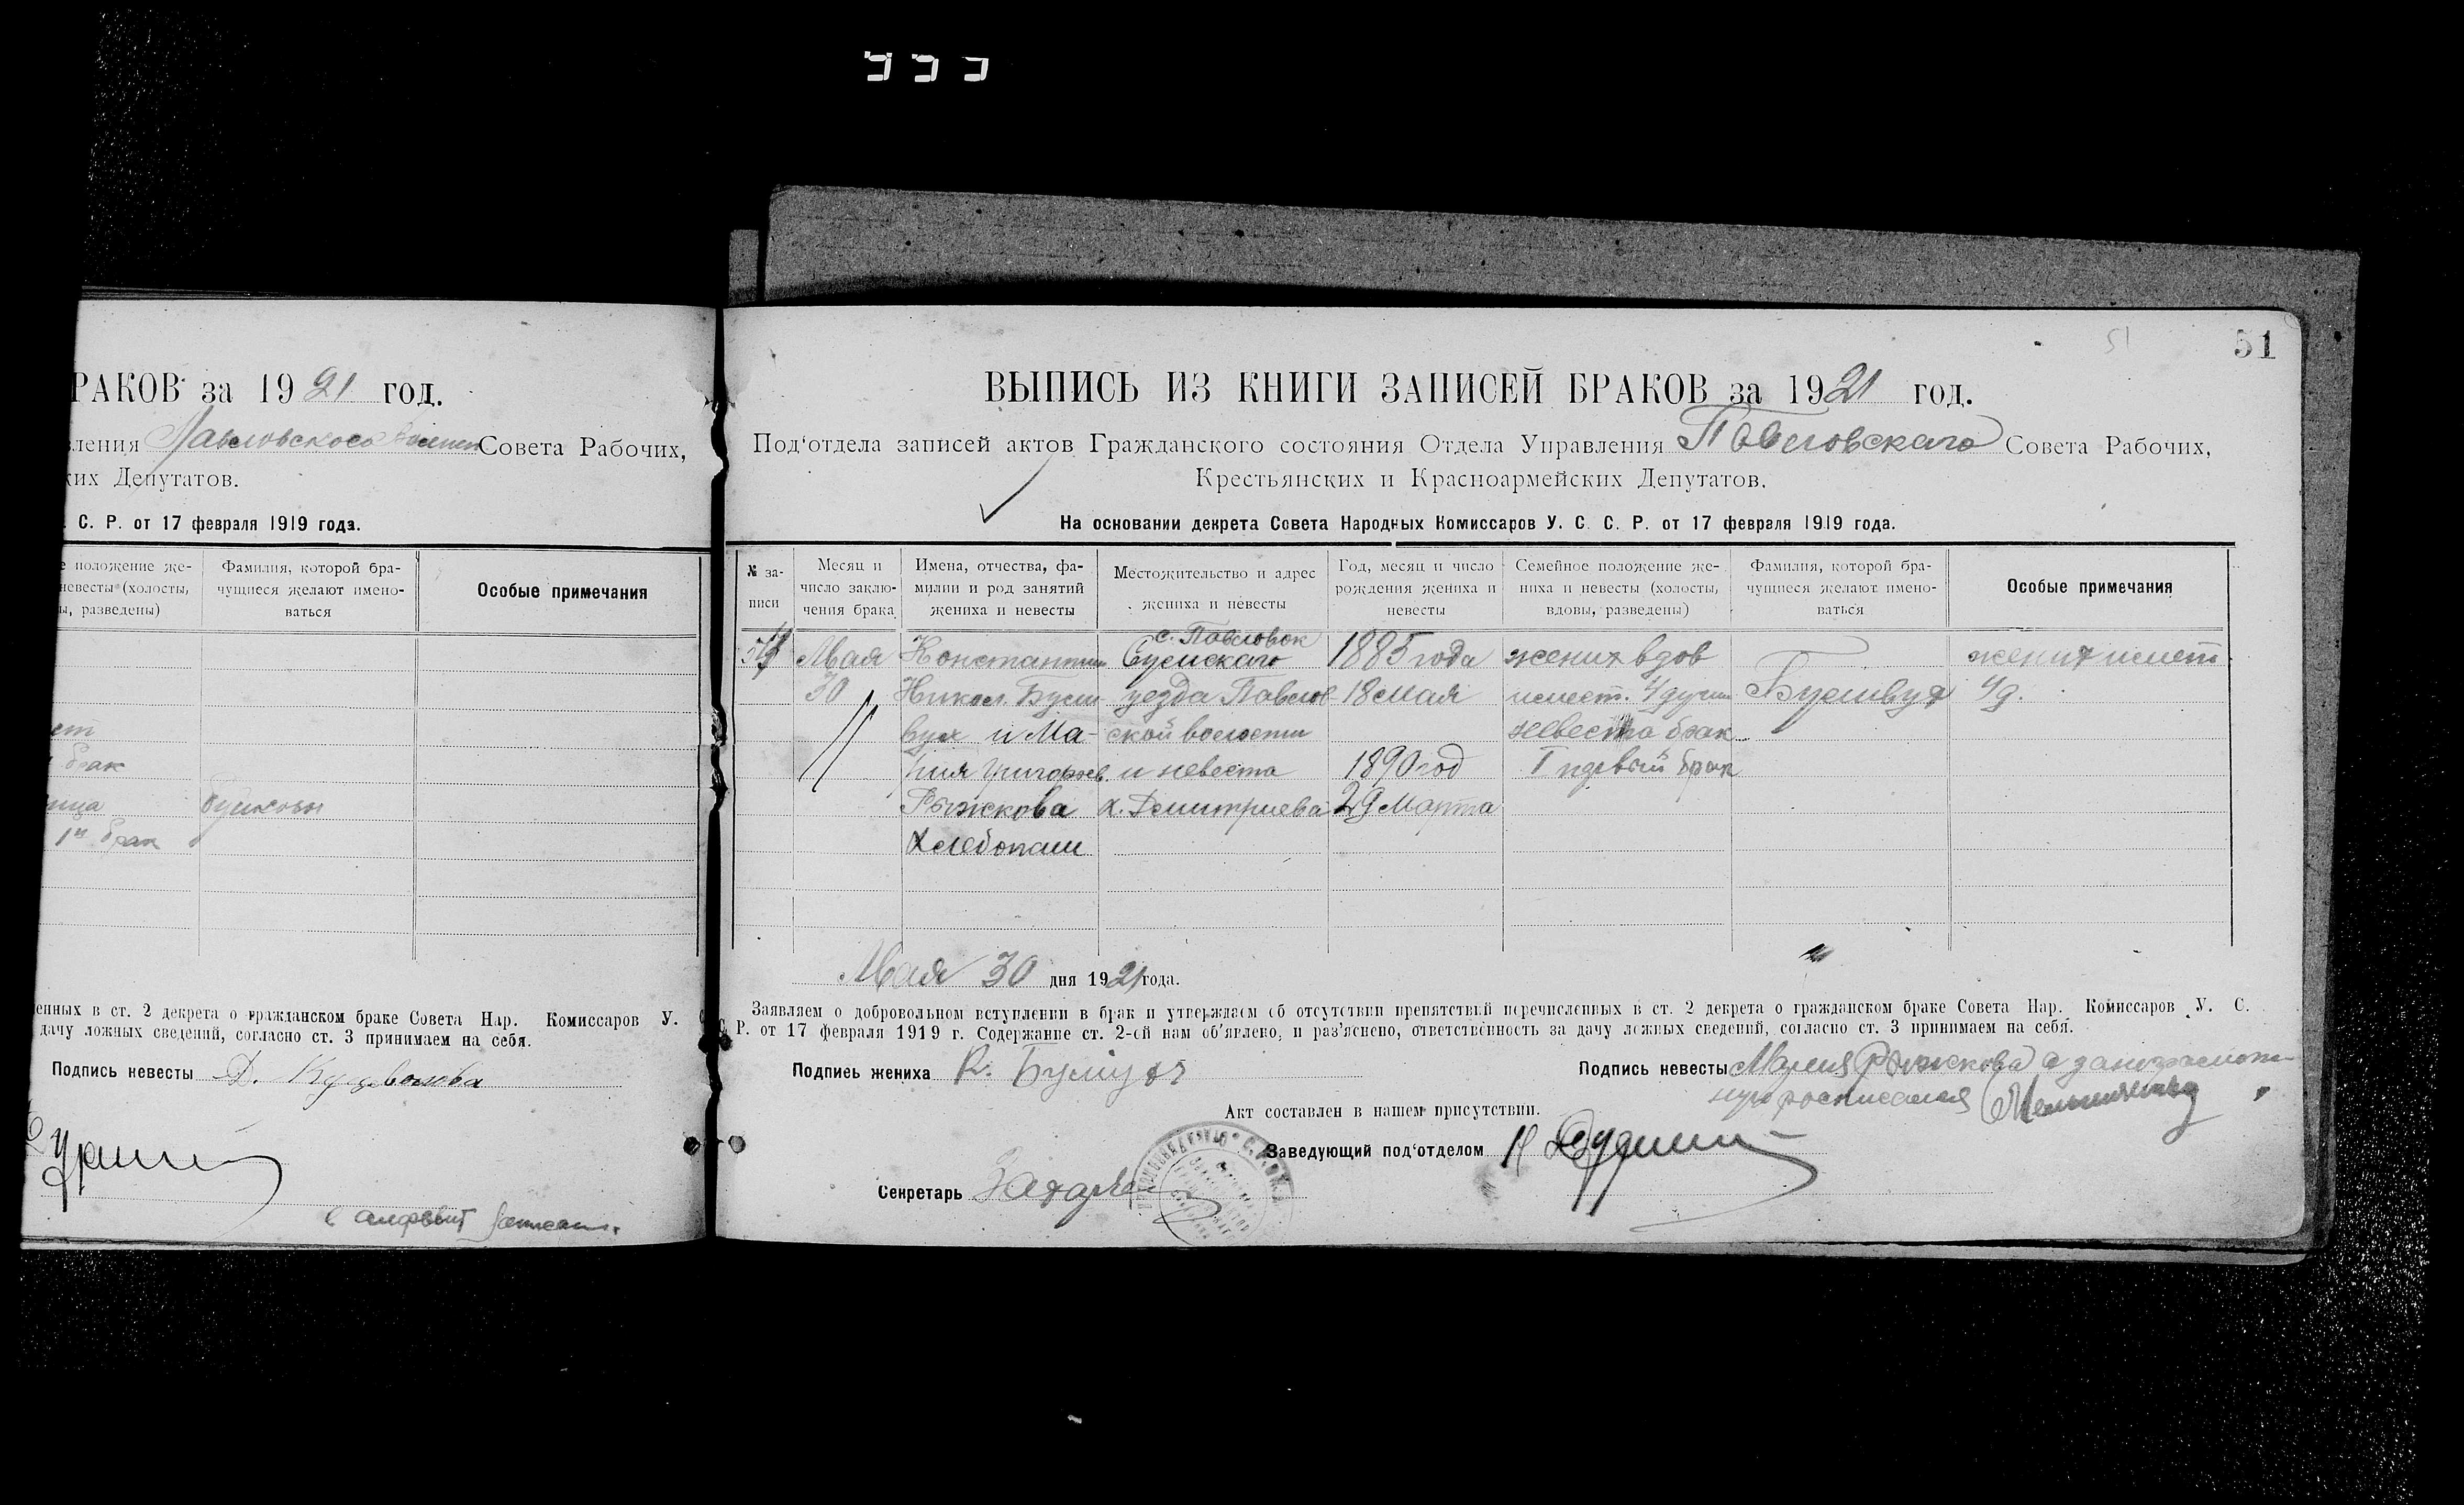 РАКОВ за 1921 год.
вления Павловского Совета Рабочих,
ких Депутатов.
. С. Р. от 17 февраля 1919 года.
е положение же-
невесты (холосты,
ы, разведены)
Фамилия, которой бра-
чущиеся желают имено-
ваться
Особые примечания
ет
брак
ица
1й брак
енных в ст. 2 декрета о гражданском браке Совета Нар. Комиссаров У.
дачу ложных сведений, согласно ст. 3 принимаем на себя.
Подпись невесты Д.
в алфавит записан.
51
51
ВЫПИСЬ ИЗ КНИГИ ЗАПИСЕЙ БРАКОВ за 1921 год.
Под‘отдела записей актов Гражданского состояния Отдела Управления Павловскаго Совета Рабочих,
Крестьянских и Красноармейских Депутатов.
На основании декрета Совета Народных Комиссаров У. С. С. Р. от 17 февраля 1919 года.
№ за-
писи
Месяц и
число заклю-
чения брака
Имена, отчества, фа-
милии и род занятий
жениха и невесты
Местожительство и адрес
жениха и невесты
Год, месяц и число
рождения жениха и
невесты
Семейное положение же-
ниха и невесты (холосты,
вдовы, разведены)
Фамилия, которой бра-
чущиеся желают имено-
ваться
Особые примечания
Мая
30
Константин
Никол. Бушм
вух и Ма-
рия Григорьев.
Рыжкова
Хлебопаш
с. Павловок
Сумскаго
уезда Павлов-
ской волости
и невеста
х. Дмитриева
1885 года
18 мая
1890 год
29 Марта
жених вдов
имеет. 4 души
невеста брак
I первый брак
жених имеет
4 д.
Мая 30 дня 1921 года.
Заявляем о добровольном вступлении в брак и утверждаем об отсутствии препятствий перечисленных в ст. 2 декрета о гражданском браке Совета Нар. Комиссаров У. С.
С. Р. от 17 февраля 1919 г. Содержание ст. 2-ой нам об‘явлено, и раз‘яснено, ответственность за дачу ложных сведений, согласно ст. 3 принимаем на себя.
Подпись жениха К.
Подпись невесты Мария Рыжкова а за неграмот
ную росписался
Акт составлен в нашем присутствии.
Заведующий под‘отделом
Секретарь